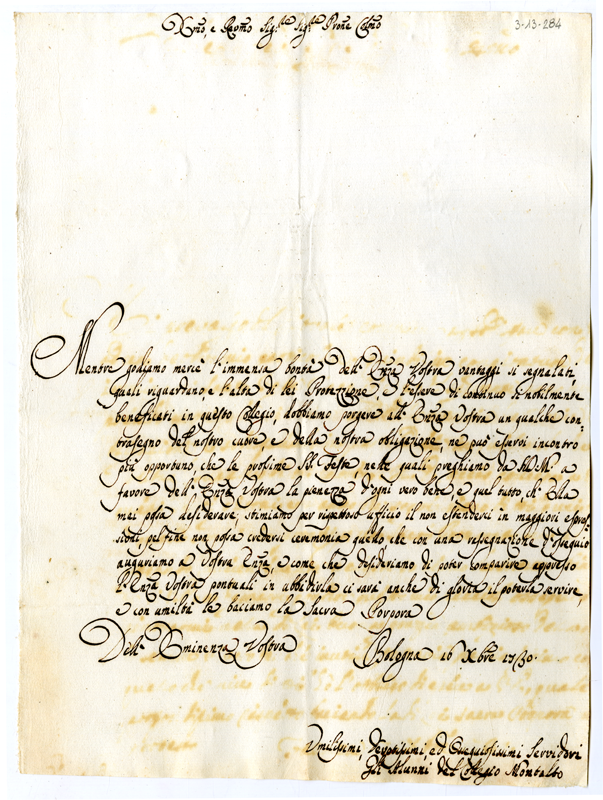 3-13-284
Emo, e Revmo Sigre Sigre Prone Colmo
Mentre godiamo mercè l'immensa bontà dell'Emza Vostra vantaggi si segnalati,
quali riguardano, e l'alta di lei Protezzione, e l'essere di continuo si nobilmente
beneficati in questo Collegio, dobbiamo porgere all'Emza Vostra un qualche con:
trasegno del nostro cuore, e della nostra obligazione, ne può esservi incontro
più opportuno, che le prossime SS. Feste, nelle quali preghiamo da S. D. M. a
favore dell'Emza Vostra la pienezza d'ogni vero bene, e quel tutto, ch'Ella
mai possa desiderare, stimiamo per rispettoso ufficio il non estenderci in maggiori espres:
sioni, pel fine non possa credersi ceremonia quello che con una rassegnazione d'ossequio
auguriamo a Vostra Emza, e come che desideriamo di poter comparire appresso
l'Emza Vostra pontuali in ubbidirla ci sarà anche di gloria il poterla servire,
e con umiltà le baciamo la Sacra Porpora
Dell'Eminenza Vostra
Bologna 16 Xbre 1730.
Umilissimi, Devotissimi, ed Ossequiosissimi Servidori
Gli Alunni del Collegio Montalto